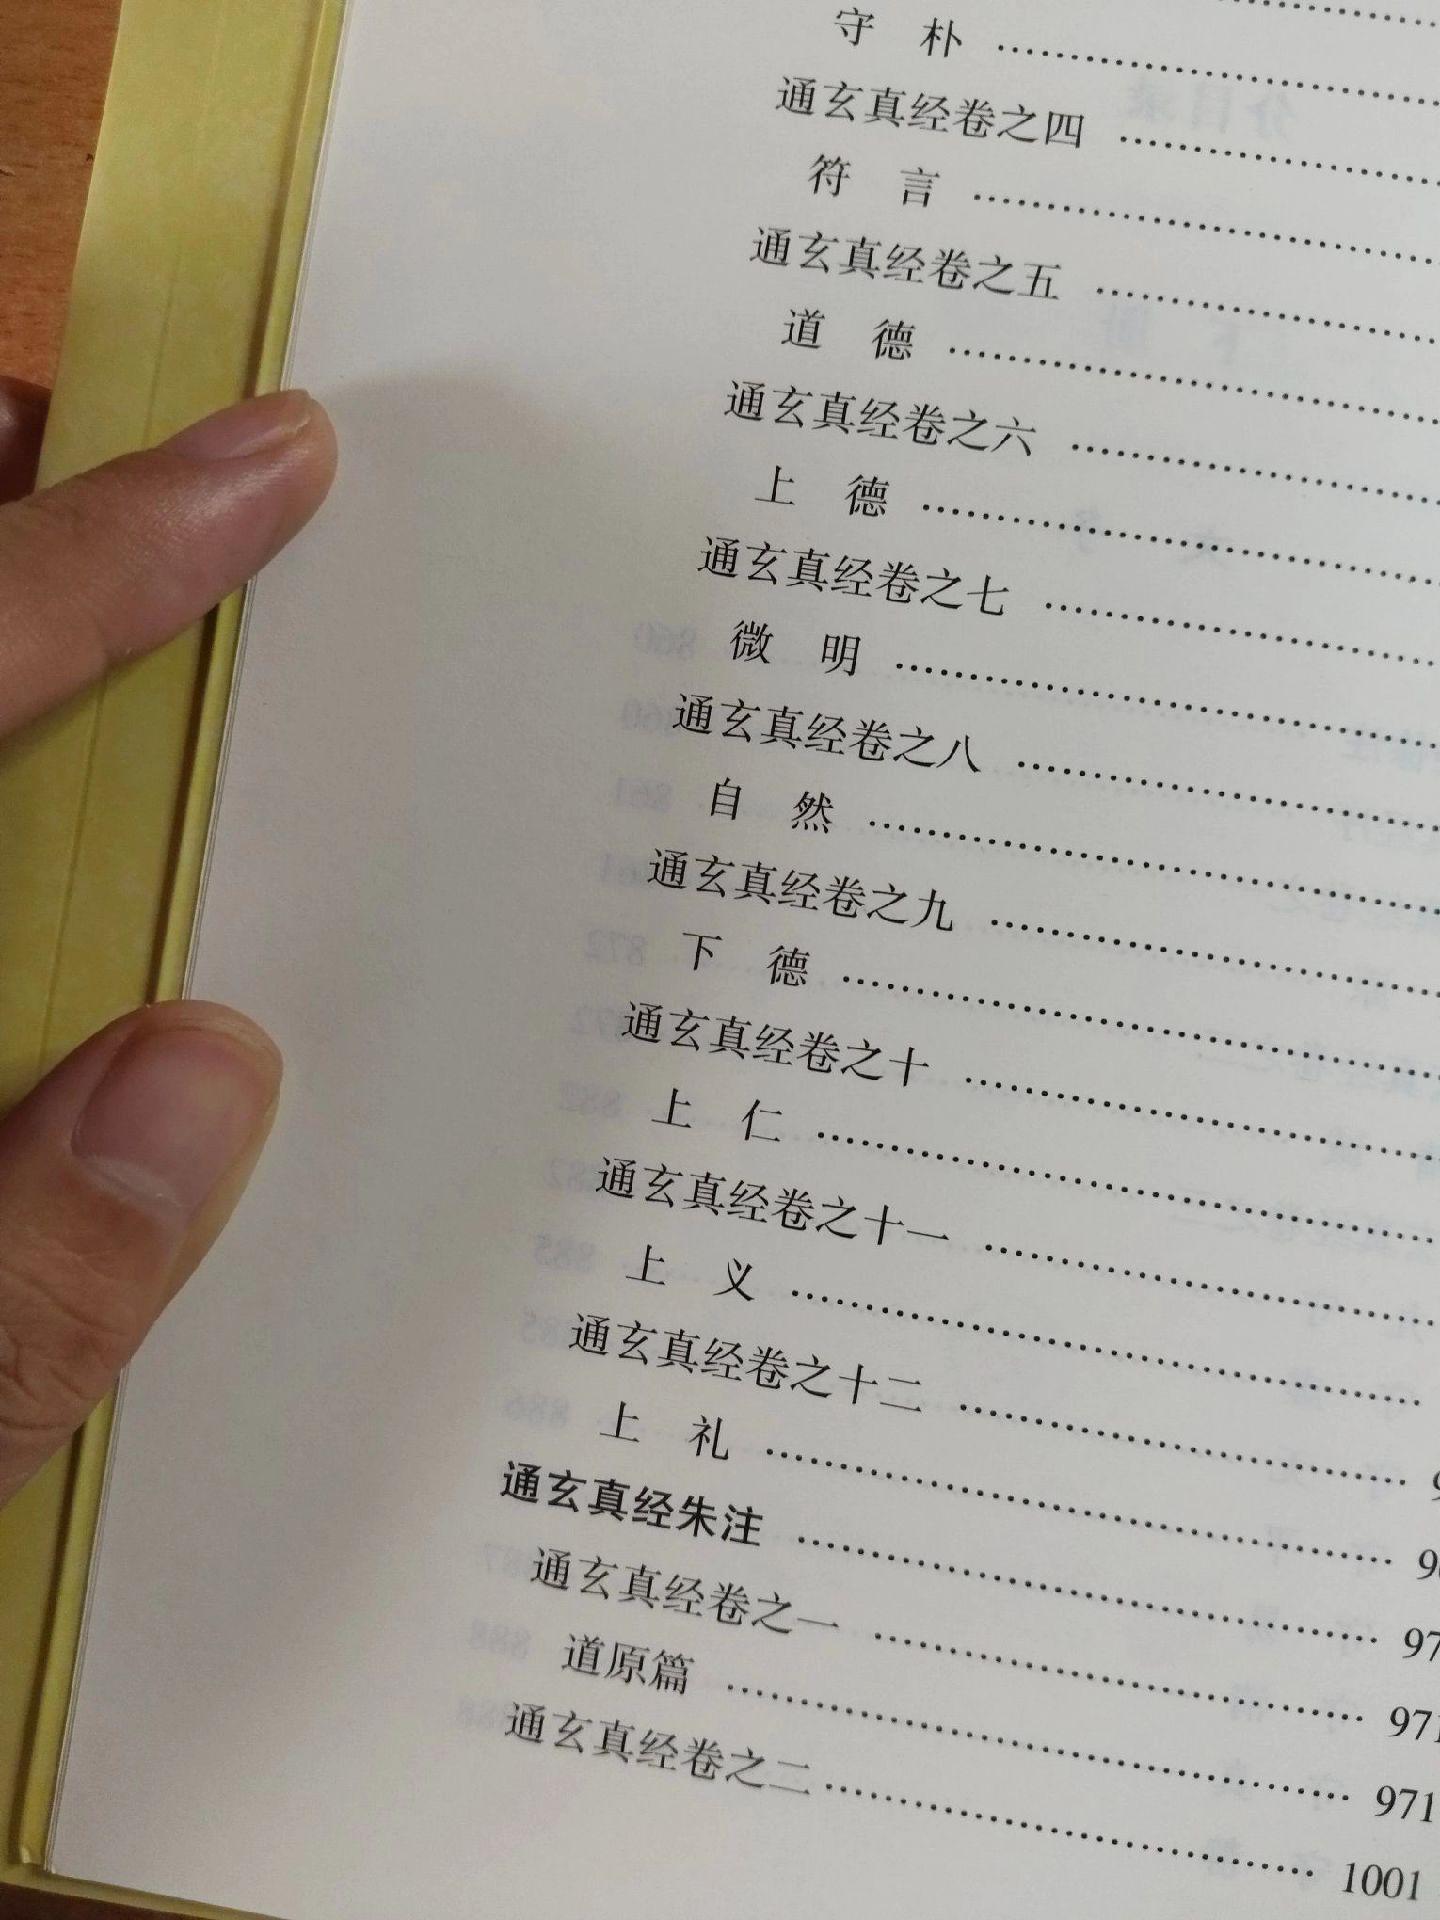 守　朴
通玄真经卷之四
符　言
通玄真经卷之五
道　德
通玄真经卷之六
上　德
通玄真经卷之七
微　明
通玄真经卷之八
自　然
通玄真经卷之九
下　德
通玄真经卷之十
上　仁
通玄真经卷之十一
上　义
通玄真经卷之十二
上　礼
通玄真经朱注
通玄真经卷之一 971
道原篇 971
通玄真经卷之二 1001